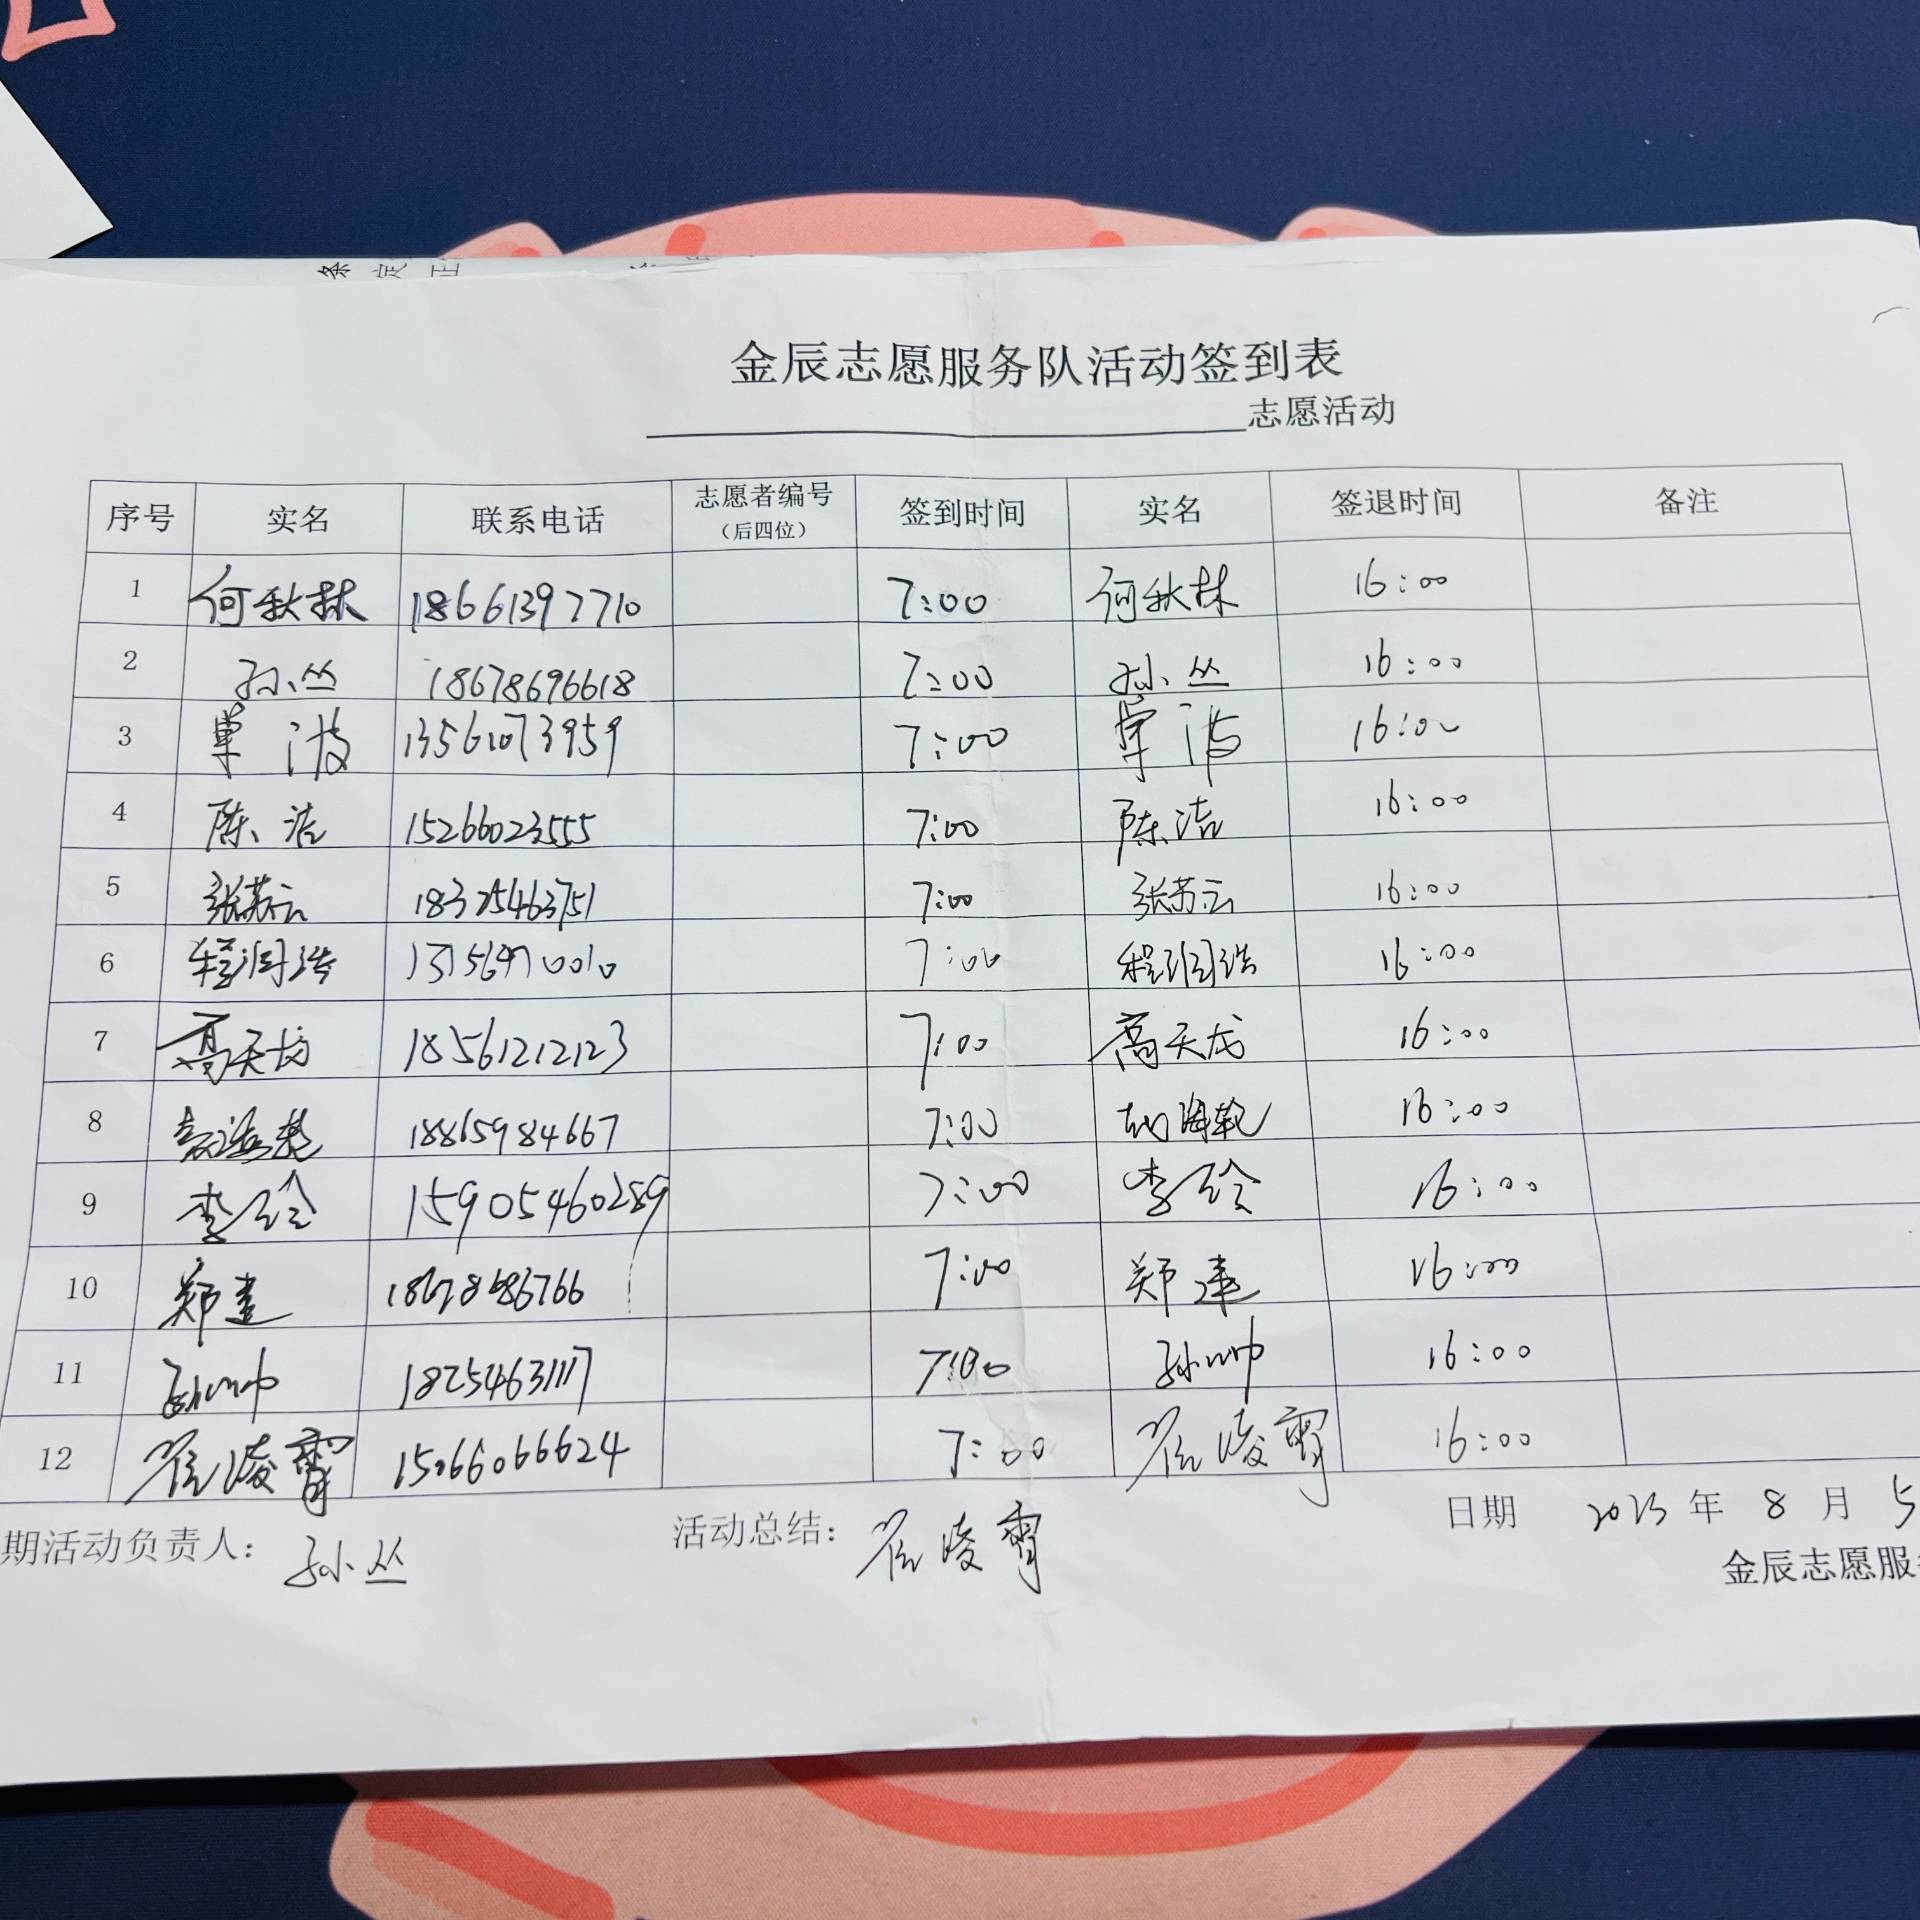 金辰志愿服务队活动签到表
志愿活动
序号 实名 联系电话 志愿者编号（后四位） 签到时间 实名 签退时间 备注
1 何秋林 18661397710 7:00 何秋林 16:00
2 孙丛 18678696618 7:00 孙丛 16:00
3 覃波 13561073959 7:00 覃波 16:00
4 陈洁 15266023555 7:00 陈洁 16:00
5 张苏云 18325463751 7:00 张苏云 16:00
6 程润浩 7:00 程润浩 16:00
7 高天龙 18561212123 7:00 高天龙 16:00
8 18865984667 7:00 16:00
9 李玲 15905460289 7:00 李玲 16:00
10 郑建 18678686766 7:00 郑建 16:00
11 孙帅 7:00 孙帅 16:00
12 崔凌霄 15066066624 7:00 崔凌霄 16:00
期活动负责人： 孙丛 活动总结： 崔凌霄 日期 2023 年 8 月 5
金辰志愿服